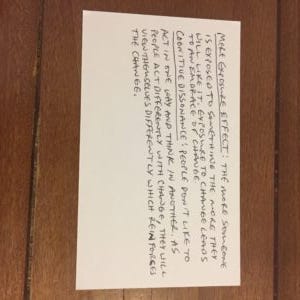 MERE EXPOSURE EFFECT: THE MORE SOMEONE
IS EXPOSED TO SOMETHING THE MORE THEY
WILL LIKE IT. EXPOSURE TO CHANGE LEADS
TO AN EMBRACE OF CHANGE
COGNITIVE DISSONANCE: PEOPLE DON'T LIKE TO
ACT IN ONE WAY AND THINK IN ANOTHER. AS
PEOPLE ACT DIFFERENTLY WITH CHANGE, THEY WILL
VIEW THEMSELVES DIFFERENTLY WHICH REINFORCES
THE CHANGE.